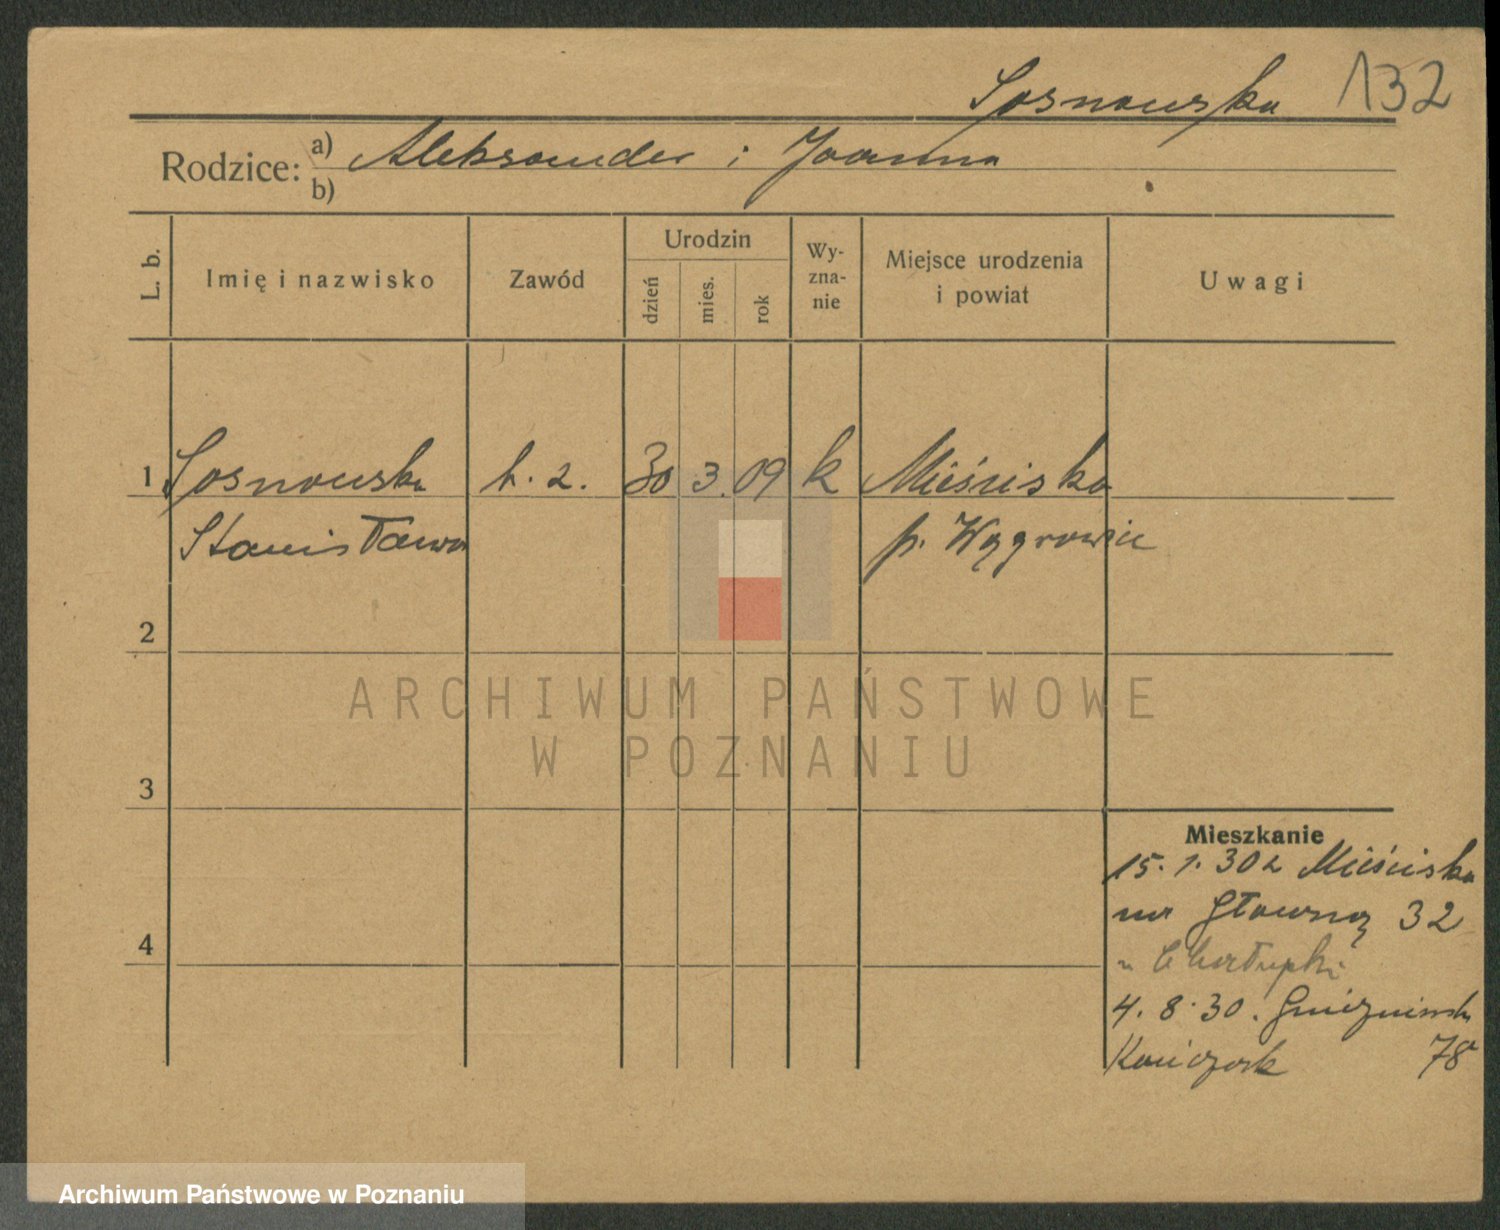 Sosnowska 132
Rodzice: a) Aleksander i Joanna
b)
L. b.
Imię i nazwisko
Zawód
Urodzin
dzień
mies.
rok
Wy-
zna-
nie
Miejsce urodzenia
i powiat
Uwagi
1 Sosnowska b. z. 30 3. 09 k Mieścisko
Stanisława p. Wągrowiec
2
3
4
ARCHIWUM PAŃSTWOWE
W POZNANIU
Mieszkanie
15. 1. 30 z Mieściska
na Główną 32
4. 8. 30. Gnieźnieńska
78
Archiwum Państwowe w Poznaniu